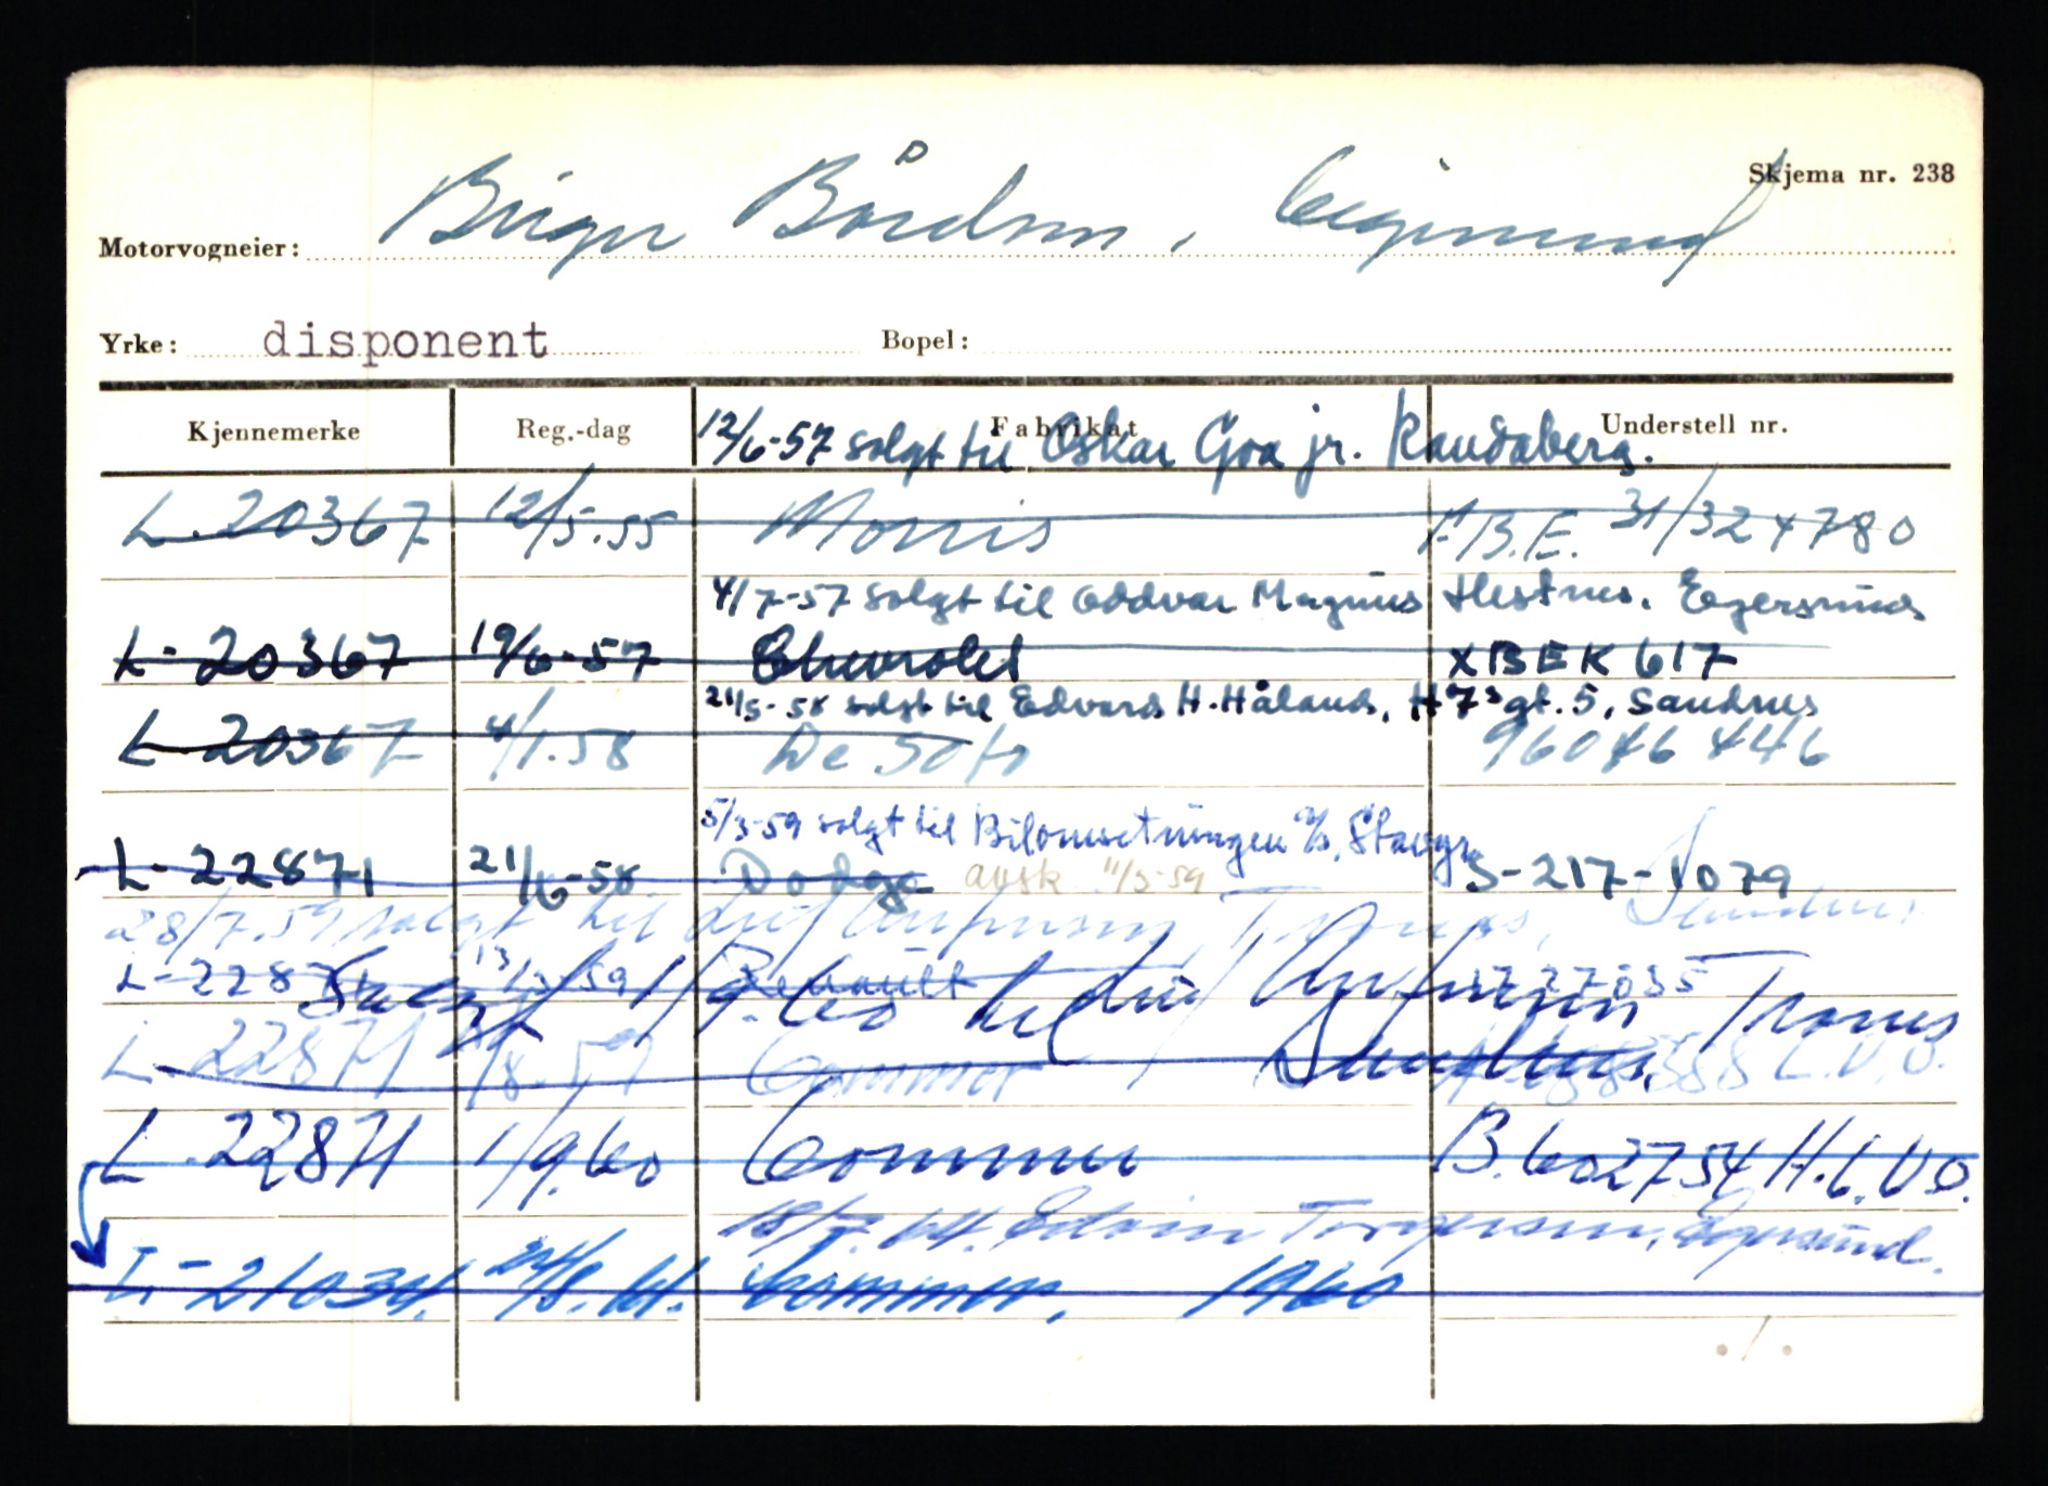 Skjema nr. 238
Motorvogneier: Birger Bårdsen, Eigersund
Yrke: disponent Bopel:
Kjennemerke Reg.-dag Fabrikat Understell nr.
12/6-57 solgt til Oskar Goa jr. Randaberg.
L. 20367 12/5.55 Morris F.B.E. 31/324780
4/7-57 solgt til Oddvar Magnus Hestnes, Egersund
L- 20367 19/6-57 Chevrolet XBEK617
21/5-58 solgt til Edvard H. Håland, H 7's gt. 5, Sandnes
L- 20367 4/1.58 De Soto 96046446
5/3-59 solgt til Bilomsetningen A/S, Stavgr.
L- 22871 21/6-58 Dodge avsk 11/3-59 S-217-1079
28/7.59 solgt til Leif Anfinsen Trones, Sandnes
L-22871 13/3-59 Renault
Solgt 1/9.60 til Leif Anfinsen Trones
Sandnes
L. 22871 /8.59 Commer L.V.O.
L. 22871 1/9.60 Commer B.602754 H.L.V.O.
Edvin Torgersen, Egersund.
L-21034. 24/8.61. Commer. 1960
./.